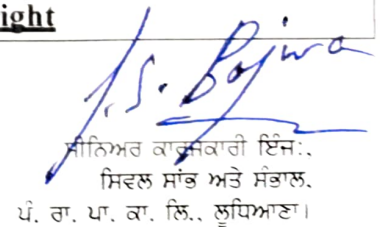 ight
J.S. Bajwa
ਸੀਨਿਅਰ ਕਾਰਜਕਾਰੀ ਇੰਜ:.
ਸਿਵਲ ਸਾਂਭ ਅਤੇ ਸੰਭਾਲ.
ਪੰ. ਰਾ. ਪਾ. ਕਾ. ਲਿ.. ਲੁਧਿਆਣਾ।